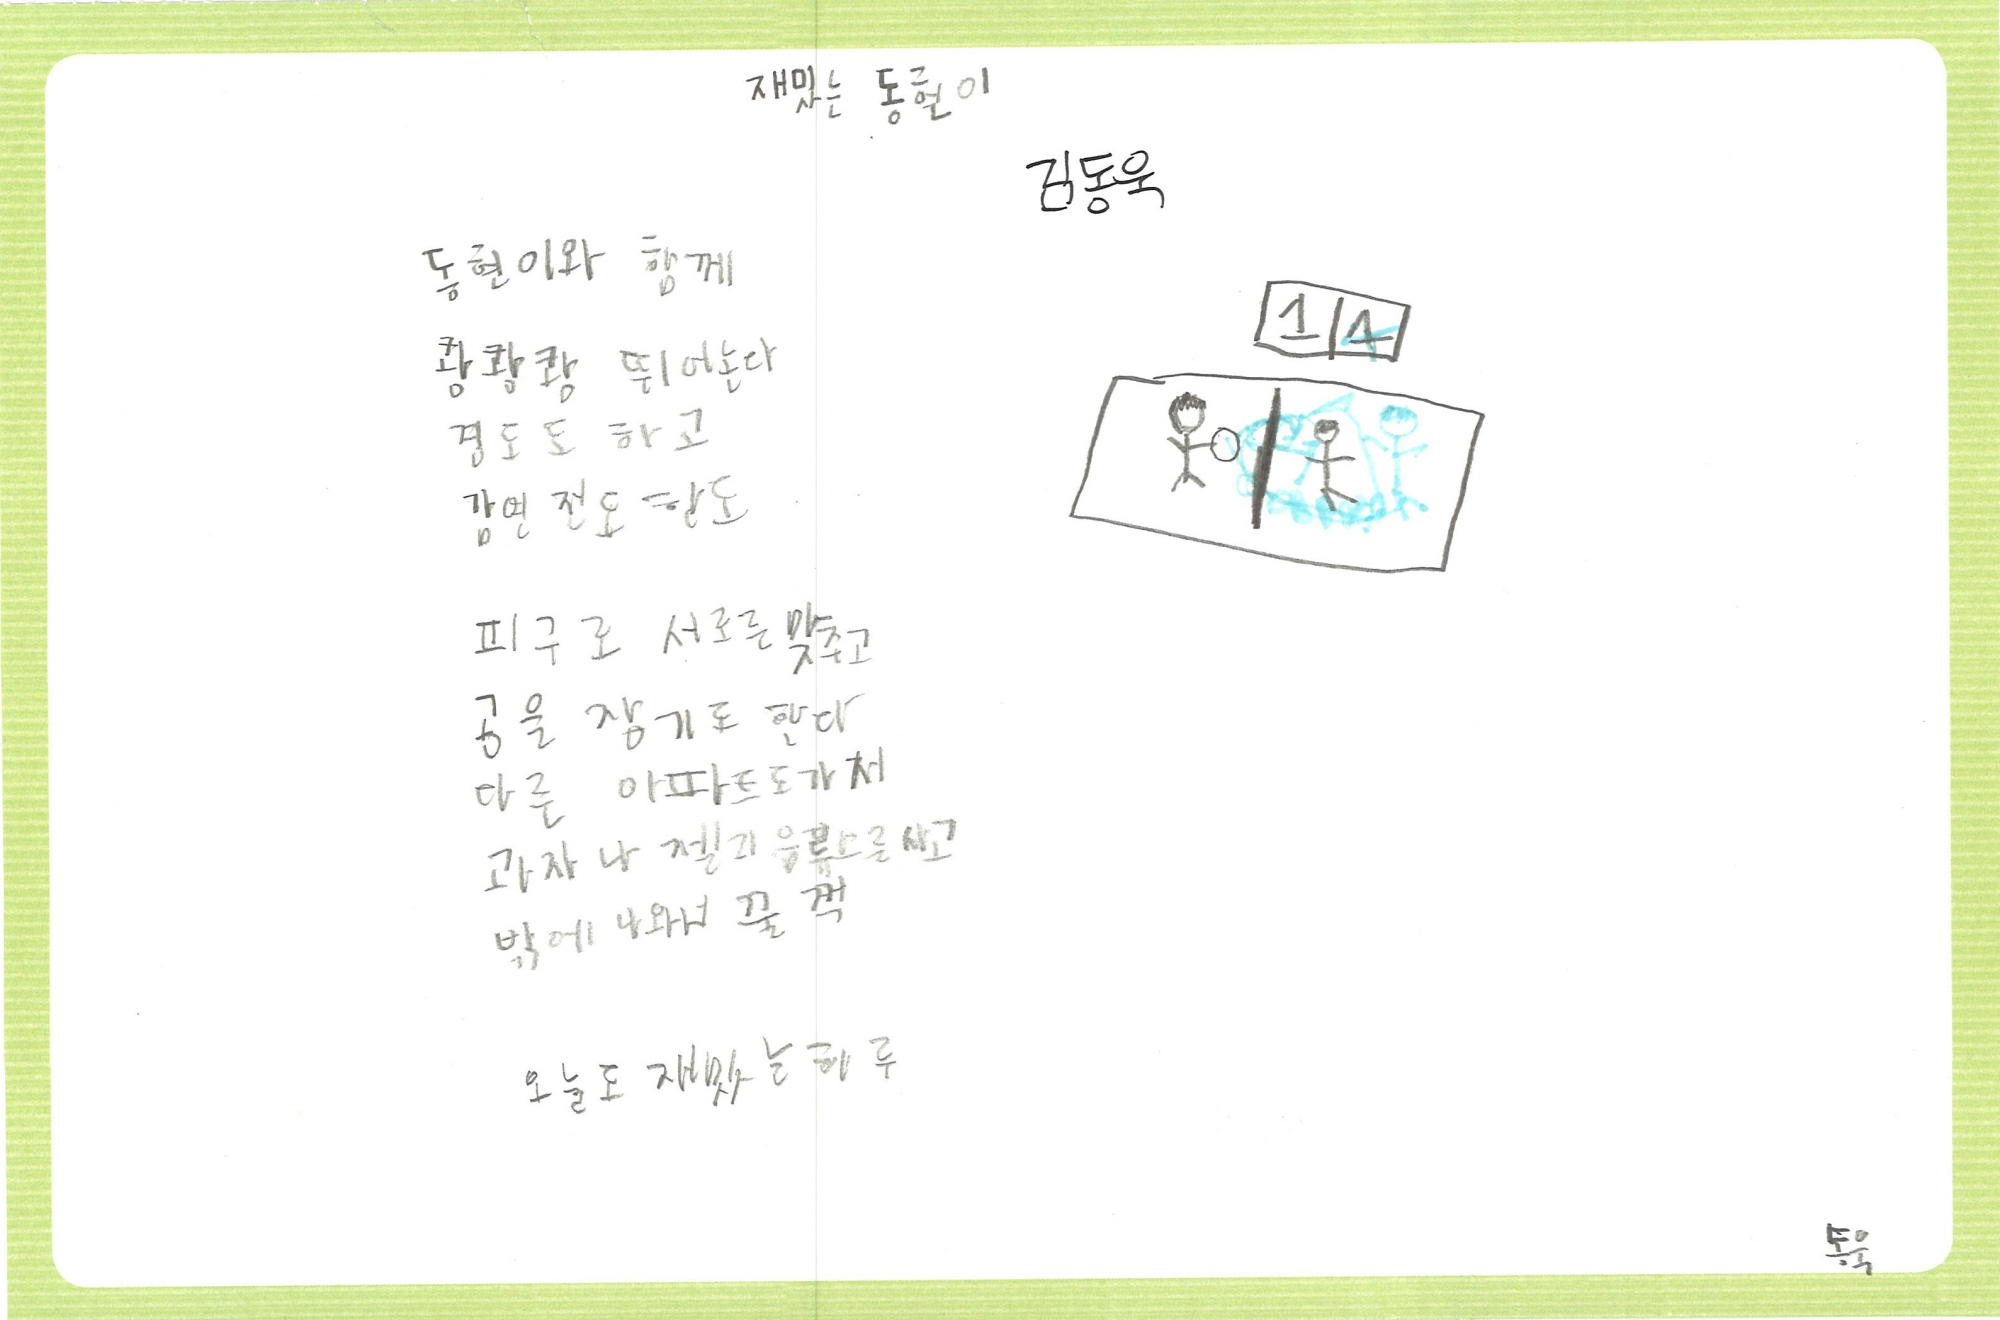 재밌는 동현이
김동욱
동현이와 함께
쾅쾅쾅 뛰어논다
경도도 하고
감연전도 한도
1 4
피구로 서로를 맞추고
공을 잡기도 한다
다른 아파트도가서
과자나 젤리 음류수를사고
밖에 나와서 꿀꺽
오늘도 재밌는 하루
동욱